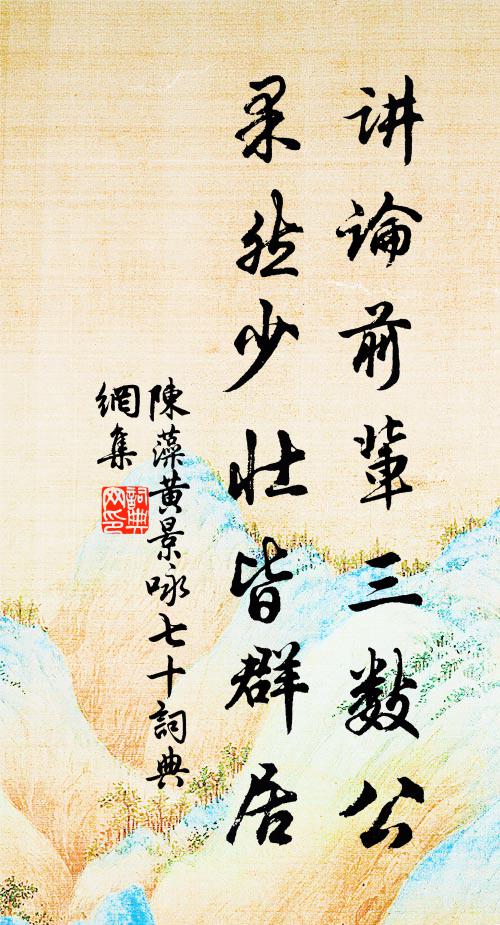 讲論前輩三數公
果然少壯皆群居
陳藻黃景咏七十詞典
網集
詞典
网印